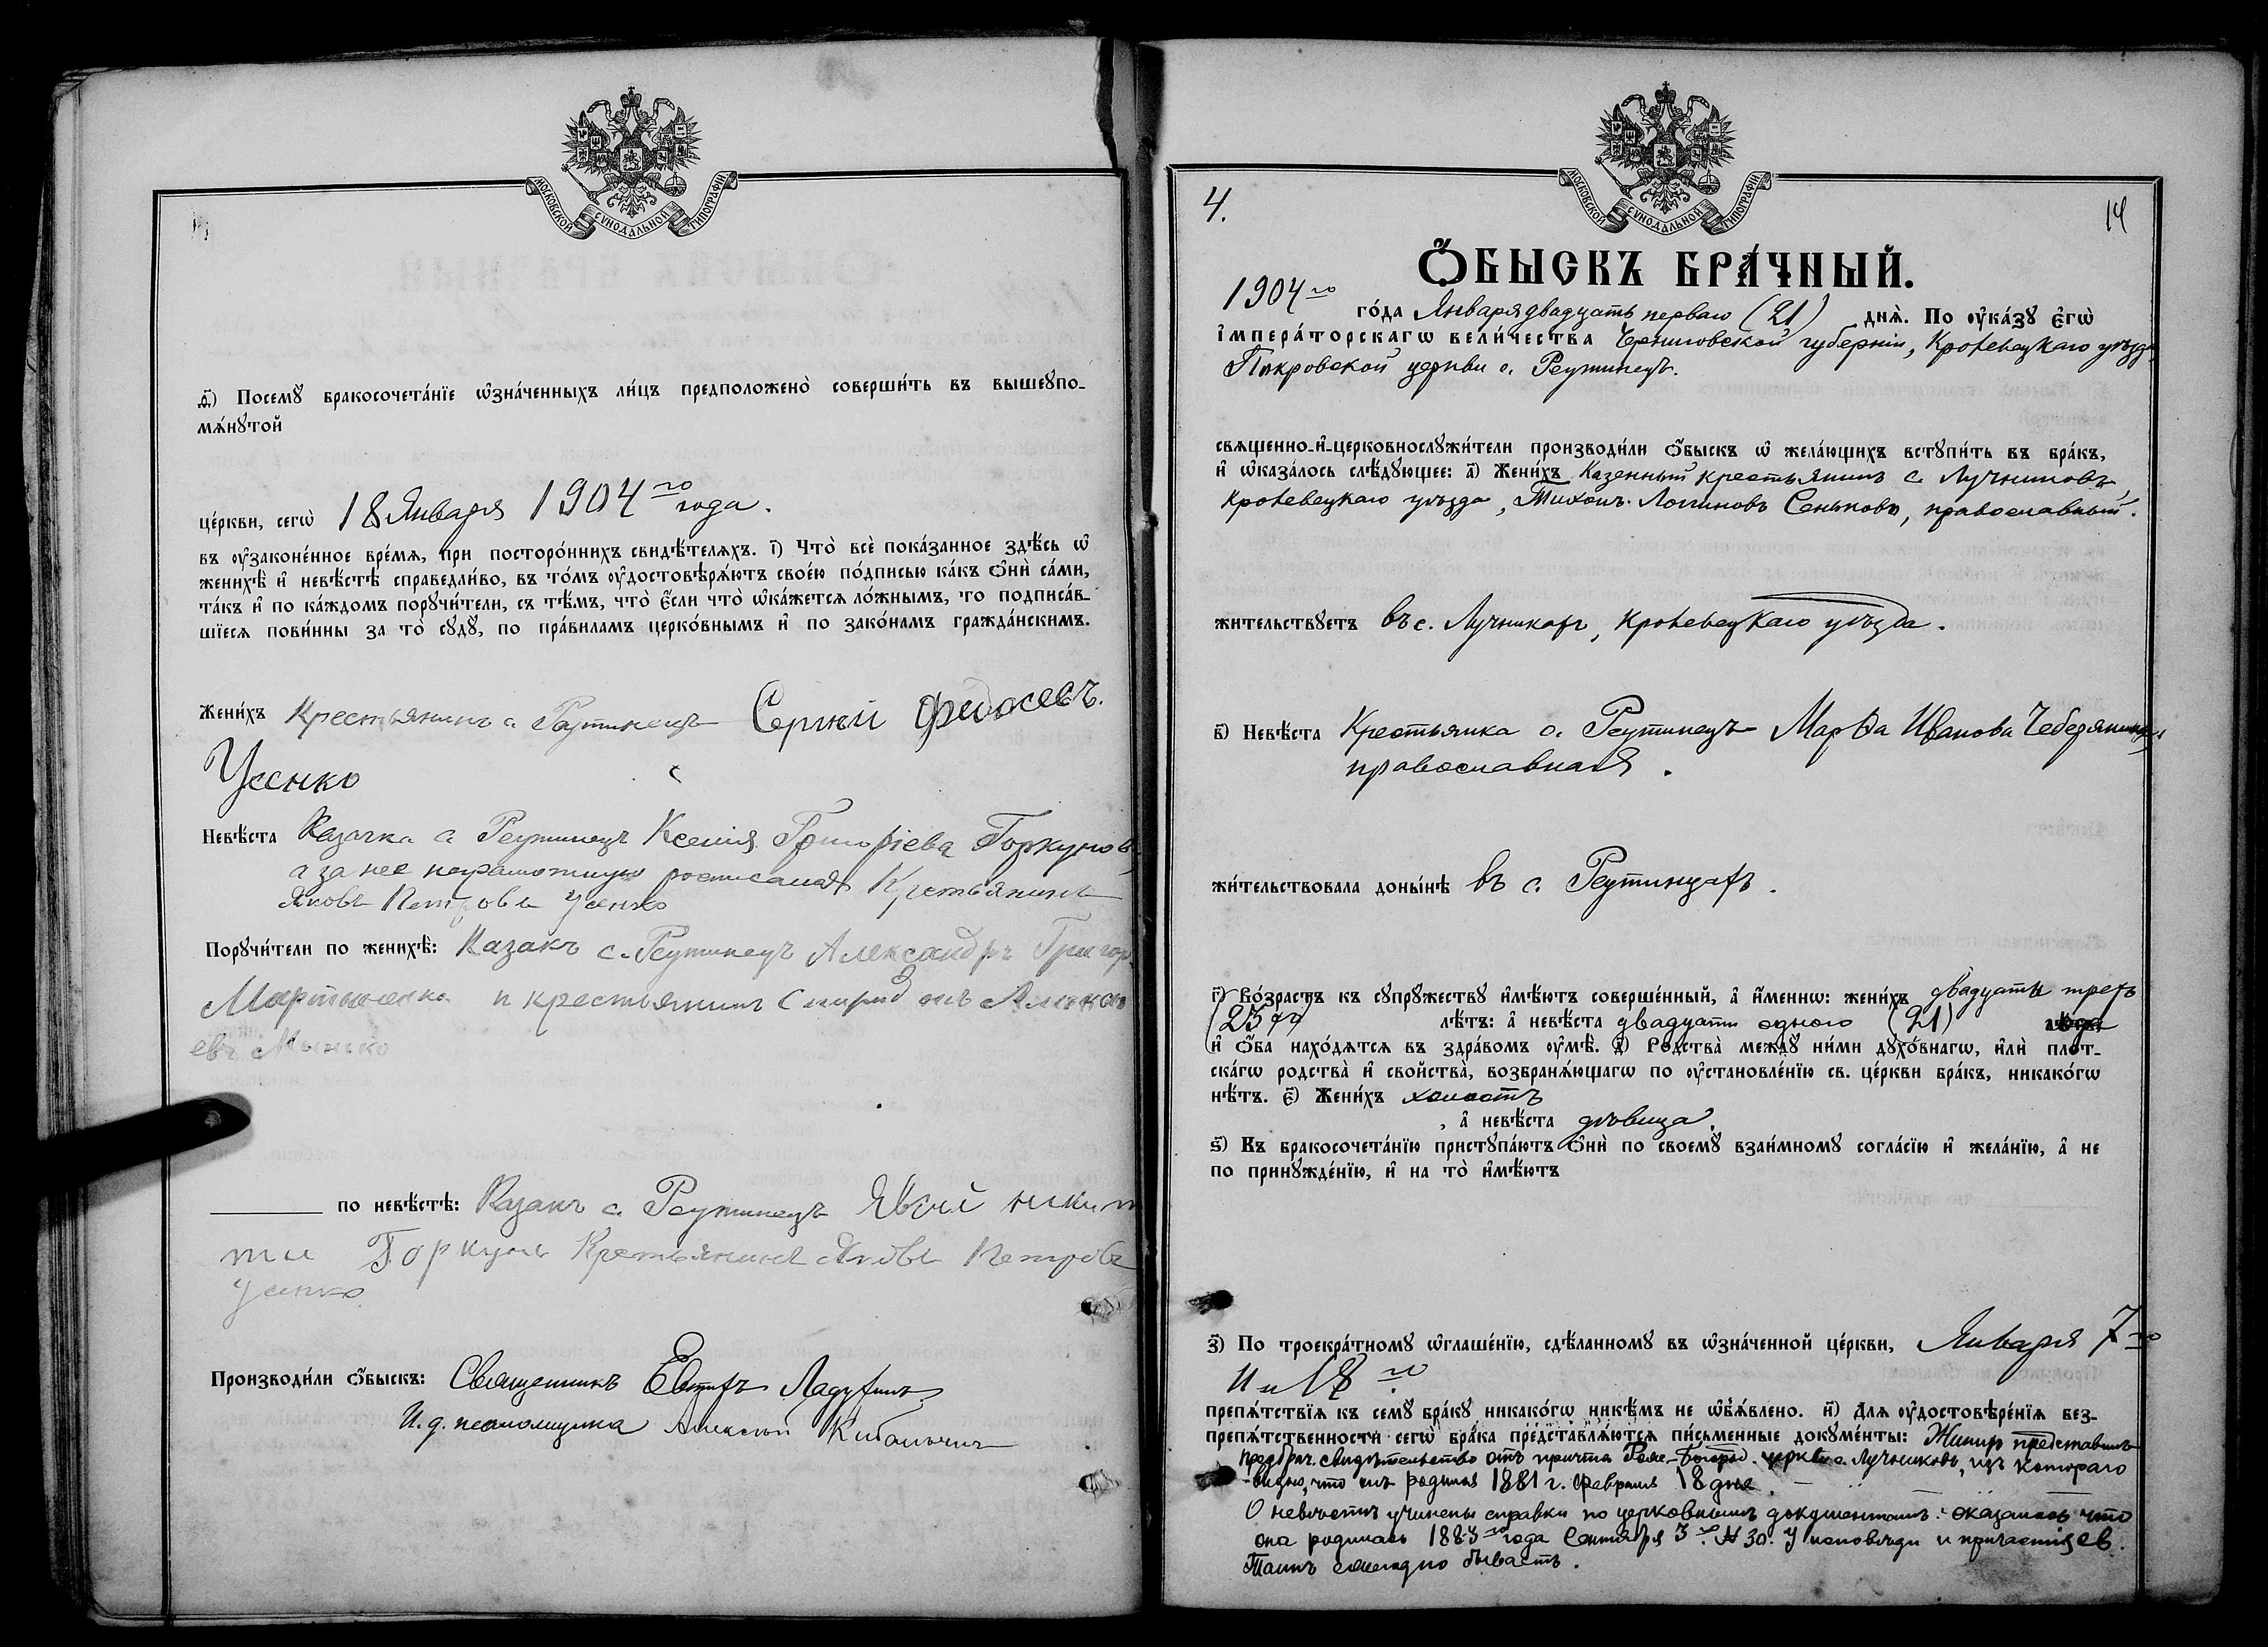 МОСКОВСКОЙ СѴНОДАЛЬНОЙ ТИПОГРАФІИ
д҃і) Посемꙋ бракосочета́нїе ѡ҆зна́ченныхъ ли́цъ предположено̀ соверши́ть въ вышеꙋпо-
мѧ́нꙋтой
це́ркви, сегѡ̀ 18 Января 1904 го года.
въ ᲂу҆зако́ненное вре́мѧ, при посторо́ннихъ свидѣ́телѧхъ. г҃і) Что̀ всѐ пока́занное здѣ́сь ѡ҆
женихѣ̀ и҆ невѣ́стѣ справедли́во, въ то́мъ ᲂу҆достовѣрѧ́ютъ свое́ю по́дписью ка́къ ѻ҆нѝ са́ми,
та́къ и҆ по ка́ждомъ порꙋчи́тели, съ тѣ́мъ, что̀ є҆́сли что̀ ѡ҆ка́жетсѧ ло́жнымъ, то подписа́в-
шїесѧ пови́нны за то̀ сꙋдꙋ̀, по пра́виламъ церко́внымъ и҆ по зако́намъ гражда́нскимъ.
Жени́хъ Крестьянинъ с. Реутинецъ Сергій Фидосеевъ
Усенко
Невѣ́ста Казачка с. Реутинецъ Ксенія Григоріева Горкунов
а за нее неграмотную росписался Крестьянинъ
Яковъ Петровъ Усенко
Порꙋчи́тели по женихѣ̀: Казакъ с. Реутинецъ Александръ Григор
Мартыненко и крестьянинъ Спиридонъ Алексѣ
евъ
по невѣ́стѣ: Казакъ с. Реутинецъ никит
Горкунъ Крестьянинъ Яковъ Петровъ
Усенко
Производи́ли ѻ҆́быскъ: Священникъ Евтифъ
И. д. псаломщика Алексій Кибальчичъ
МОСКОВСКОЙ СѴНОДАЛЬНОЙ ТИПОГРАФІИ
4.
14
Ѻ҆́БЫСКЪ БРА́ЧНЫЙ.
1904 го го́да Января двадцать перваго (21) днѧ̀. По ᲂу҆ка́зꙋ є҆гѡ̀
і҆мпера́торскагѡ вели́чества Черниговской губерніи, Кролевецкаго уѣзда
Покровской церкви с. Реутинецъ.
свѧщенно-и҆-церковнослꙋжи́тели производи́ли ѻ҆́быскъ ѡ҆ жела́ющихъ встꙋпи́ть въ бра́къ,
и҆ ѡ҆каза́лось слѣ́дꙋющее: а҃) Жени́хъ Казенный крестьянинъ с. Лучниковъ,
Кролевецкаго уѣзда, Тихонъ Логиновъ Сеньковъ, православный.
жи́тельствꙋетъ въ с. Лучникахъ, Кролевецкаго уѣзда.
в҃) Невѣ́ста Крестьянка с. Реутинецъ Марѳа Иванова
православная.
жи́тельствовала доны́нѣ въ с. Реутинцахъ.
г҃) Во́зрастъ къ сꙋпрꙋ́жествꙋ и҆мѣ́ютъ соверше́нный, а҆ и҆́меннѡ: жени́хъ двадцать трехъ
(23хъ) лѣ́тъ: а҆ невѣ́ста двадцати одного (21)
и҆ ѻ҆́ба нахо́дѧтсѧ въ здра́вомъ ᲂу҆мѣ̀. д҃) Родства̀ междꙋ̀ ни́ми дꙋхо́внагѡ, и҆лѝ пло́т-
ска́гѡ родства̀ и҆ сво́йства̀, возбранѧ́ющагѡ по ᲂу҆становле́нїю св. це́ркви бра́къ, никако́гѡ
нѣ́тъ. є҃) Жени́хъ холостъ
, а҆ невѣ́ста дѣвица.
ѕ҃) Къ бракосочета́нїю пристꙋпа́ютъ ѻ҆нѝ по своемꙋ̀ взаи́мномꙋ согла́сїю и҆ жела́нїю, а҆ не
по принꙋжде́нїю, и҆ на то̀ и҆мѣ́ютъ
з҃) По троекра́тномꙋ ѡ҆глаше́нїю, сдѣ́ланномꙋ въ ѡ҆зна́ченной це́ркви, Января 7 го
18 го
препѧ́тствїѧ къ семꙋ̀ бра́кꙋ никако́гѡ никѣ́мъ не ѡ҆б̾ѧ́влено. и҃) Длѧ ᲂу҆достовѣре́нїѧ без-
препѧ́тственности сегѡ̀ бра́ка представлѧ́ютсѧ пи́сьменные докꙋме́нты: Женихъ представилъ
предбрач. свидѣтельство отъ причта Рож.-Богород. церкви с. Лучниковъ, изъ котораго
видно, что онъ родился 1881 г. Февраля 18 дня.
О невѣстѣ учинены справки по церковнымъ документамъ: оказалось что
она родилась 1883 го года Сентября 3 го № 30. У исповѣди и причастія св.
Таинъ ежегодно бываетъ.